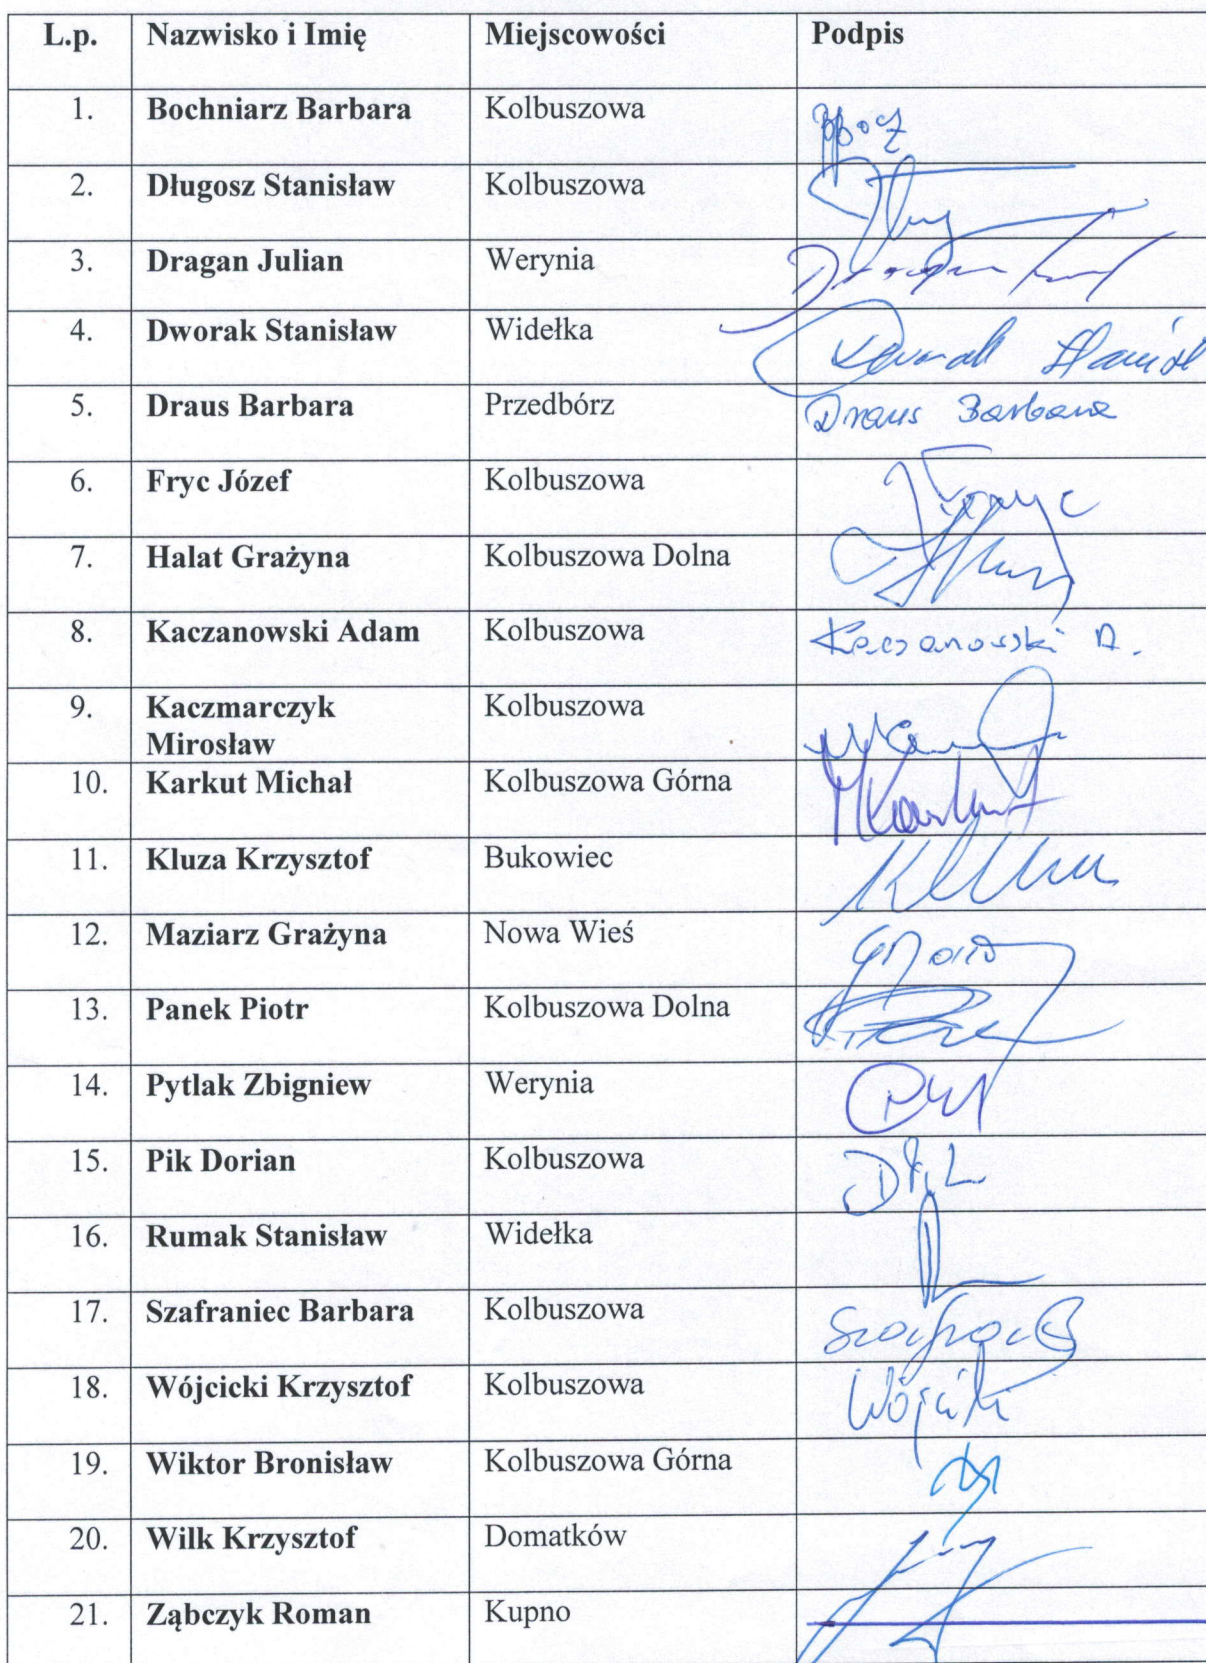 L.p. Nazwisko i Imię Miejscowości Podpis
1. Bochniarz Barbara Kolbuszowa
2. Długosz Stanisław Kolbuszowa
3. Dragan Julian Werynia
4. Dworak Stanisław Widełka Dworak
5. Draus Barbara Przedbórz Draus Barbara
6. Fryc Józef Kolbuszowa
7. Halat Grażyna Kolbuszowa Dolna
8. Kaczanowski Adam Kolbuszowa Kaczanowski A.
9. Kaczmarczyk Kolbuszowa
Mirosław
10. Karkut Michał Kolbuszowa Górna MKarkut
11. Kluza Krzysztof Bukowiec
12. Maziarz Grażyna Nowa Wieś
13. Panek Piotr Kolbuszowa Dolna
14. Pytlak Zbigniew Werynia
15. Pik Dorian Kolbuszowa
16. Rumak Stanisław Widełka
17. Szafraniec Barbara Kolbuszowa
18. Wójcicki Krzysztof Kolbuszowa
19. Wiktor Bronisław Kolbuszowa Górna
20. Wilk Krzysztof Domatków
21. Ząbczyk Roman Kupno